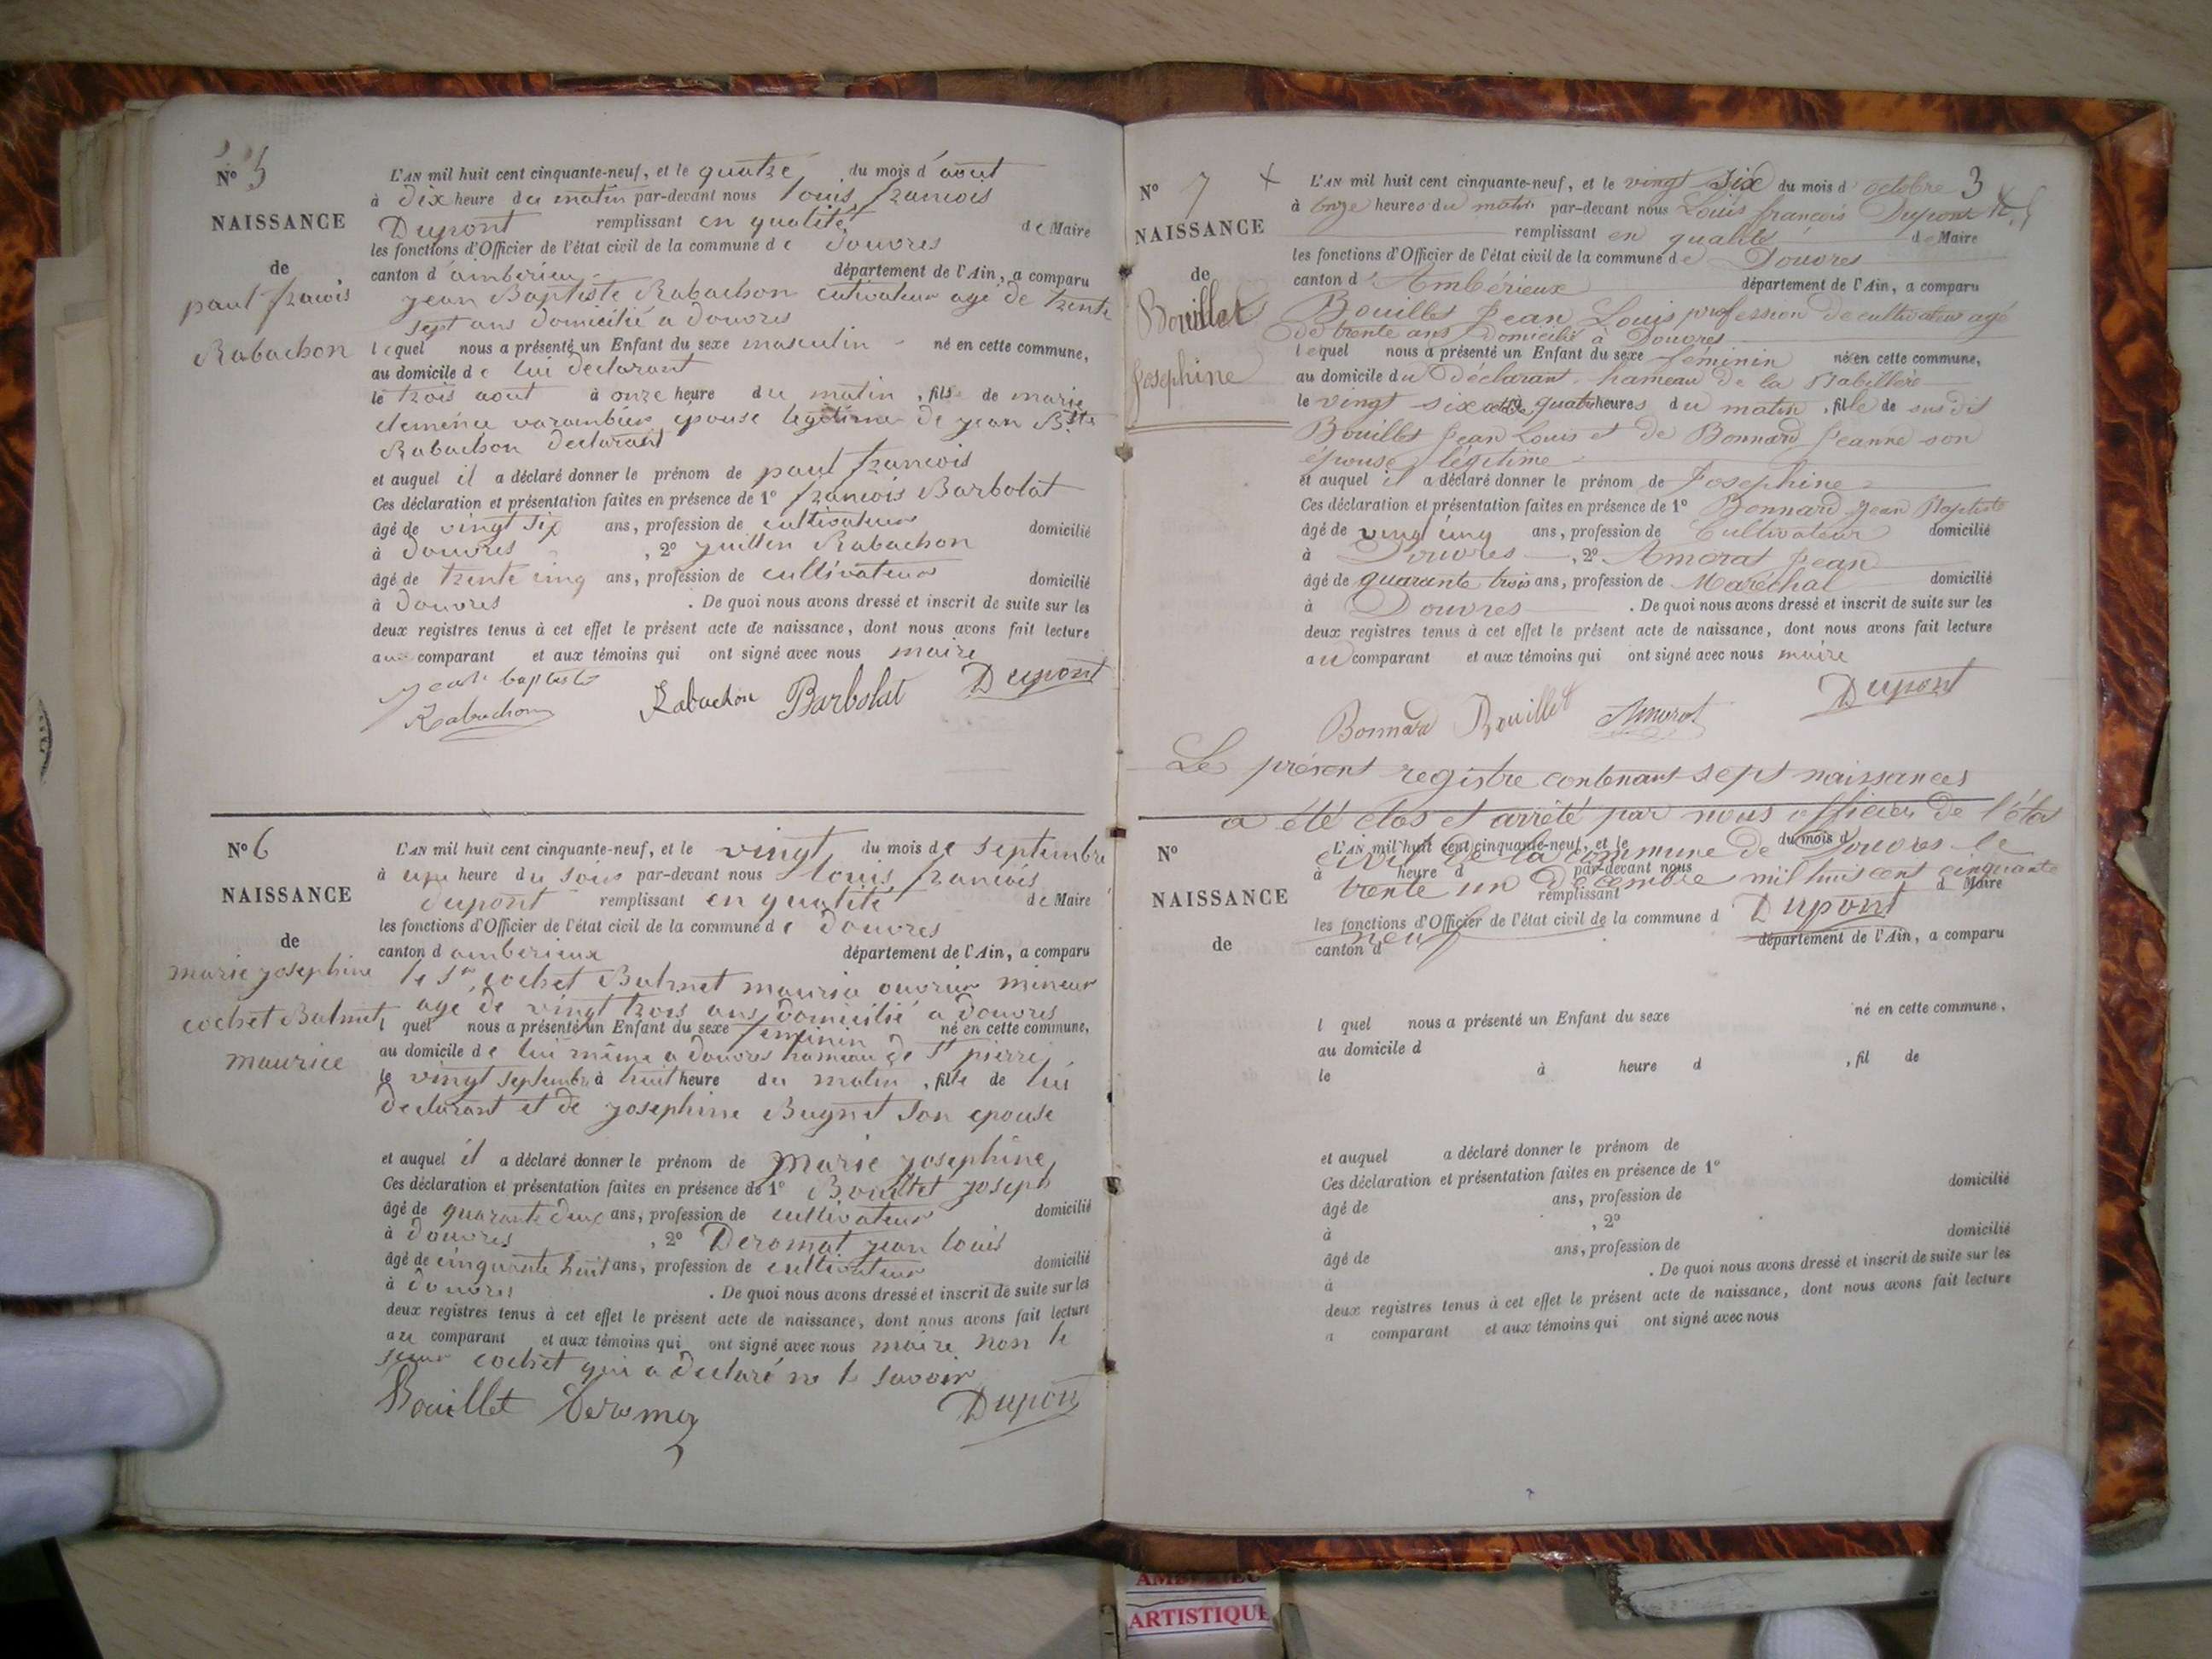 Nº 5
NAISSANCE
de
paul francois
Rabachon
L'AN mil huit cent cinquante-neuf, et le quatre du mois d'aout
à dix heure du matin par-devant nous louis francois
Dupont remplissant en qualité de Maire
les fonctions d'Officier de l'état civil de la commune de douvres
canton d'amberieux département de l'Ain, a comparu
jean Baptiste Rabachon cutivateur agé de trente
sept ans domicilié a douvres
lequel nous a présenté un Enfant du sexe masculin né en cette commune,
au domicile de lui déclarant
le trois aout à onze heure du matin, fils de marie
clemence varambier epouse legitime de jean Bste
Rabachon declarant
et auquel il a déclaré donner le prénom de paul francois
Ces déclaration et présentation faites en présence de 1º francois Barbolat
âgé de vingt six ans, profession de cultivateur domicilié
à douvres, 2º Rabachon
âgé de trente cinq ans, profession de cultivateur domicilié
à douvres. De quoi nous avons dressé et inscrit de suite sur les
deux registres tenus à cet effet le présent acte de naissance, dont nous avons fait lecture
au comparant et aux témoins qui ont signé avec nous maire
jean baptiste
Rabachon Rabachon Barbolat Dupont
Nº 6
NAISSANCE
de
marie josephine
cochet Balmet
maurice
L'AN mil huit cent cinquante-neuf, et le vingt du mois de septembre
à une heure du soir par-devant nous louis francois
dupont remplissant en qualité de Maire
les fonctions d'Officier de l'état civil de la commune de douvres
canton d amberieux département de l'Ain, a comparu
le Sr cochet Balmet ouvrier mineur
agé de vingt trois ans domicilié a douvres
l quel nous a présenté un Enfant du sexe feminin né en cette commune,
au domicile de lui même a douvres hameau de St pierre
le vingt septembre à huit heure du matin, fille de lui
declarant et de josephine Bugnet son epouse
et auquel il a déclaré donner le prénom de marie josephine
Ces déclaration et présentation faites en présence de 1º Bouillet joseph
âgé de quarante deux ans, profession de cultivateur domicilié
à douvres, 2º Deromat jean louis
âgé de cinquante huit ans, profession de cultivateur domicilié
à douvres. De quoi nous avons dressé et inscrit de suite sur les
deux registres tenus à cet effet le présent acte de naissance, dont nous avons fait lecture
au comparant et aux témoins qui ont signé avec nous maire non le
sieur cochet qui a declaré ne le savoir
Bouillet Dupont
Nº 7
NAISSANCE
de
Bouillet
Josephine
3
L'AN mil huit cent cinquante-neuf, et le vingt six du mois d octobre
à onze heures du matin par-devant nous Louis françois Dupont
remplissant en qualité de Maire
les fonctions d'Officier de l'état civil de la commune de Douvres
canton d'Ambérieux département de l'Ain, a comparu
Bouillet Jean Louis profession de cultivateur agé
de trente ans domicilié à Douvres
lequel nous a présenté un Enfant du sexe féminin né en cette commune,
au domicile du Déclarant hameau de la Babillère
le vingt six octobre à quatre heures du matin, fille de susdit
Bouillet Jean Louis et de Bonnard Jeanne son
épouse légitime
et auquel il a déclaré donner le prénom de Josephine
Ces déclaration et présentation faites en présence de 1º Bonnard Jean Baptiste
âgé de vingt cinq ans, profession de Cultivateur domicilié
à Douvres, 2º Amorat Jean
âgé de quarante trois ans, profession de Maréchal domicilié
à Douvres. De quoi nous avons dressé et inscrit de suite sur les
deux registres tenus à cet effet le présent acte de naissance, dont nous avons fait lecture
au comparant et aux témoins qui ont signé avec nous maire
Bonnard Bouillet Amorat Dupont
Le présent registre contenant sept naissances
a été clos et arrêté par nous officier de l'état
civil de la commune de Douvres le
trente un Décembre mil huit cent cinquante
neuf Dupont
Nº
NAISSANCE
de
L'AN mil huit cent cinquante-neuf, et le du mois d
à heure d par-devant nous
remplissant d Maire
les fonctions d'Officier de l'état civil de la commune d
canton d département de l'Ain, a comparu
l quel nous a présenté un Enfant du sexe né en cette commune,
au domicile d
le à heure d, fil de
et auquel a déclaré donner le prénom de
Ces déclaration et présentation faites en présence de 1º
âgé de ans, profession de domicilié
à, 2º
âgé de ans, profession de domicilié
à. De quoi nous avons dressé et inscrit de suite sur les
deux registres tenus à cet effet le présent acte de naissance, dont nous avons fait lecture
a comparant et aux témoins qui ont signé avec nous
ARTISTIQUE